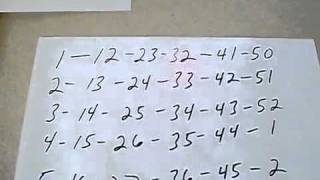 1 - 12 - 23 - 32 - 41 - 50
2 - 13 - 24 - 33 - 42 - 51
3 - 14 - 25 - 34 - 43 - 52
4 - 15 - 26 - 35 - 44 - 1
36 - 45 - 2